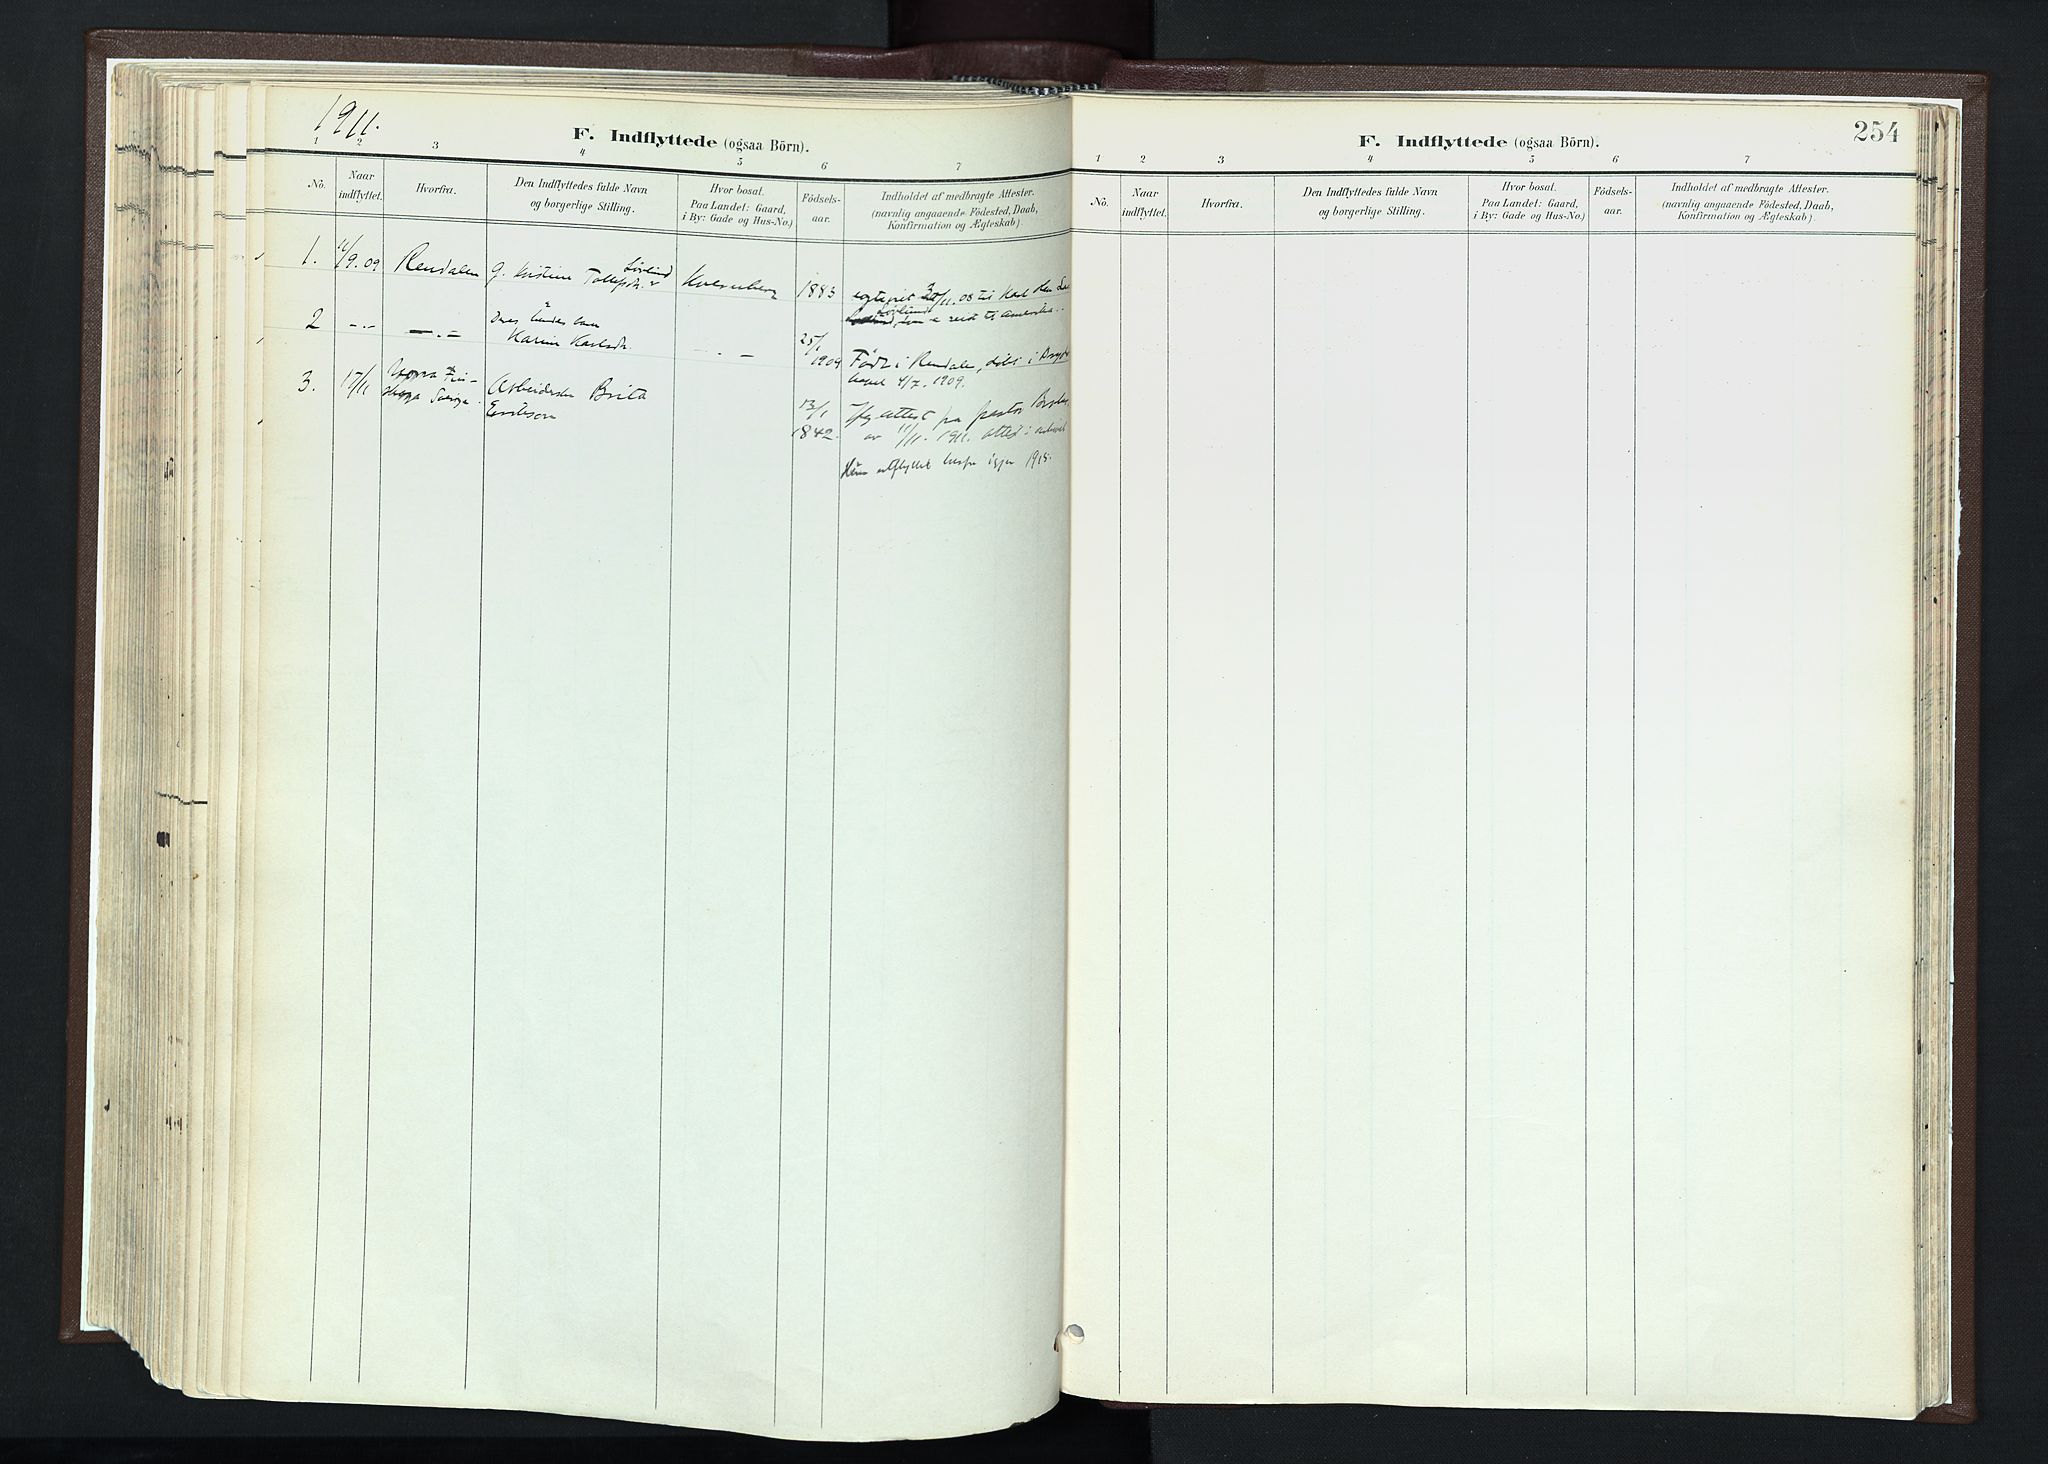 1911.
F. Indflyttede (ogsaa Börn).
1 2 3 4 5 6 7
No. Naar indflyttet. Hvorfra. Den Indflyttedes fulde Navn og borgerlige Stilling. Hvor bosat. Paa Landet: Gaard, i By: Gade og Hus-No.) Födselsaar. Indholdet af medbragte Attester. (navnlig angaaende Födested, Daab, Konfirmation og Ægteskab).
1. /9.09 Rendalen G. Kristine Tollefsdr. Løvlund 1883
11.08 til Karl
Løvlund reist til Amerika.
2 -.- -.- hendes barn
Karin Karlsdr. - . - 25/1
1909 Født i Rendalen, døbt i
kapel 4/7. 1909.
3. 17/11 Norra
Sverige. Arbeiderske Brita
Eriksson 13/1
1842. attest fra pastor
av 11/11. 1911. attest i arkivet
igjen 1915.
254
F. Indflyttede (ogsaa Börn).
1 2 3 4 5 6 7
No. Naar indflyttet. Hvorfra. Den Indflyttedes fulde Navn og borgerlige Stilling. Hvor bosat. Paa Landet: Gaard, i By: Gade og Hus-No.) Födselsaar. Indholdet af medbragte Attester. (navnlig angaaende Födested, Daab, Konfirmation og Ægteskab).